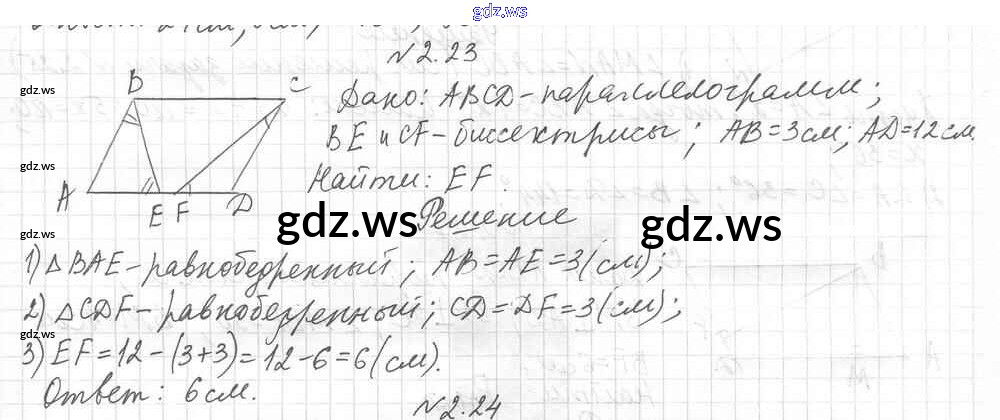 gdz.ws
№2.23
gdz.ws
B C Дано: ABCD-параллелограмм;
BE и CF-биссектрисы; AB=3см; AD=12см.
gdz.ws
A E F D Найти: EF.
gdz.ws gdz.ws
Решение
gdz.ws
1) △BAE-равнобедренный; AB=AE=3(см);
2) △CDF-равнобедренный; CD=DF=3(см);
gdz.ws
3) EF=12-(3+3)=12-6=6(см).
gdz.ws
Ответ: 6см.
№2.24